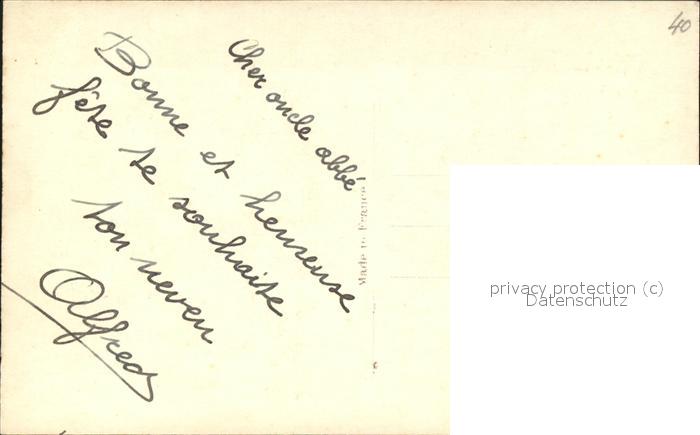 40
Cher oncle abbé
Bonne et heureuse
fête te souhaite
ton neveu
Alfred
Made in France
privacy protection (c)
Datenschutz